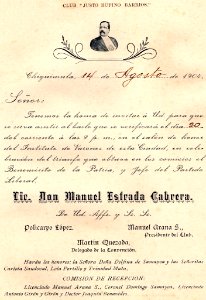 CLUB "JUSTO RUFINO BARRIOS."
Chiquimula, 14 de Agosto de 1904.
Señor:
Tenemos la honra de invitar á Ud. para que
se sirva asistir al baile que se verificará el día 20
del corriente á las 9 p. m. en el salón de honor
del Instituto de Varones de esta Ciudad, en cele-
bración del triunfo que obtuvo en los comicios el
Benemérito de la Patria, y Jefe del Partido
Liberal,
Lic. Don Manuel Estrada Cabrera.
De Ud. Affs. y Ss. Ss.
Policarpo López. Manuel Arana S.,
Presidente del Club.
Martín Quezada,
Delegado de la Convención.
Harán los honores: la Señora Doña Delfina de Samayoa y las Señoritas
Carlota Sandoval, Luis Portillo y Trinidad Mata.
COMISION DE RECEPCION:
Licenciado Manuel Arana S., Coronel Domingo Samayoa, Licenciado
Antonio Girón y Girón y Doctor Joaquín